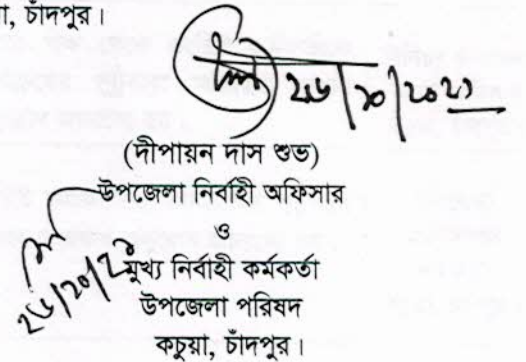 া, চাঁদপুর।
২৬/১০/২০২১
(দীপায়ন দাস শুভ)
উপজেলা নির্বাহী অফিসার
ও
মুখ্য নির্বাহী কর্মকর্তা
উপজেলা পরিষদ
কচুয়া, চাঁদপুর।